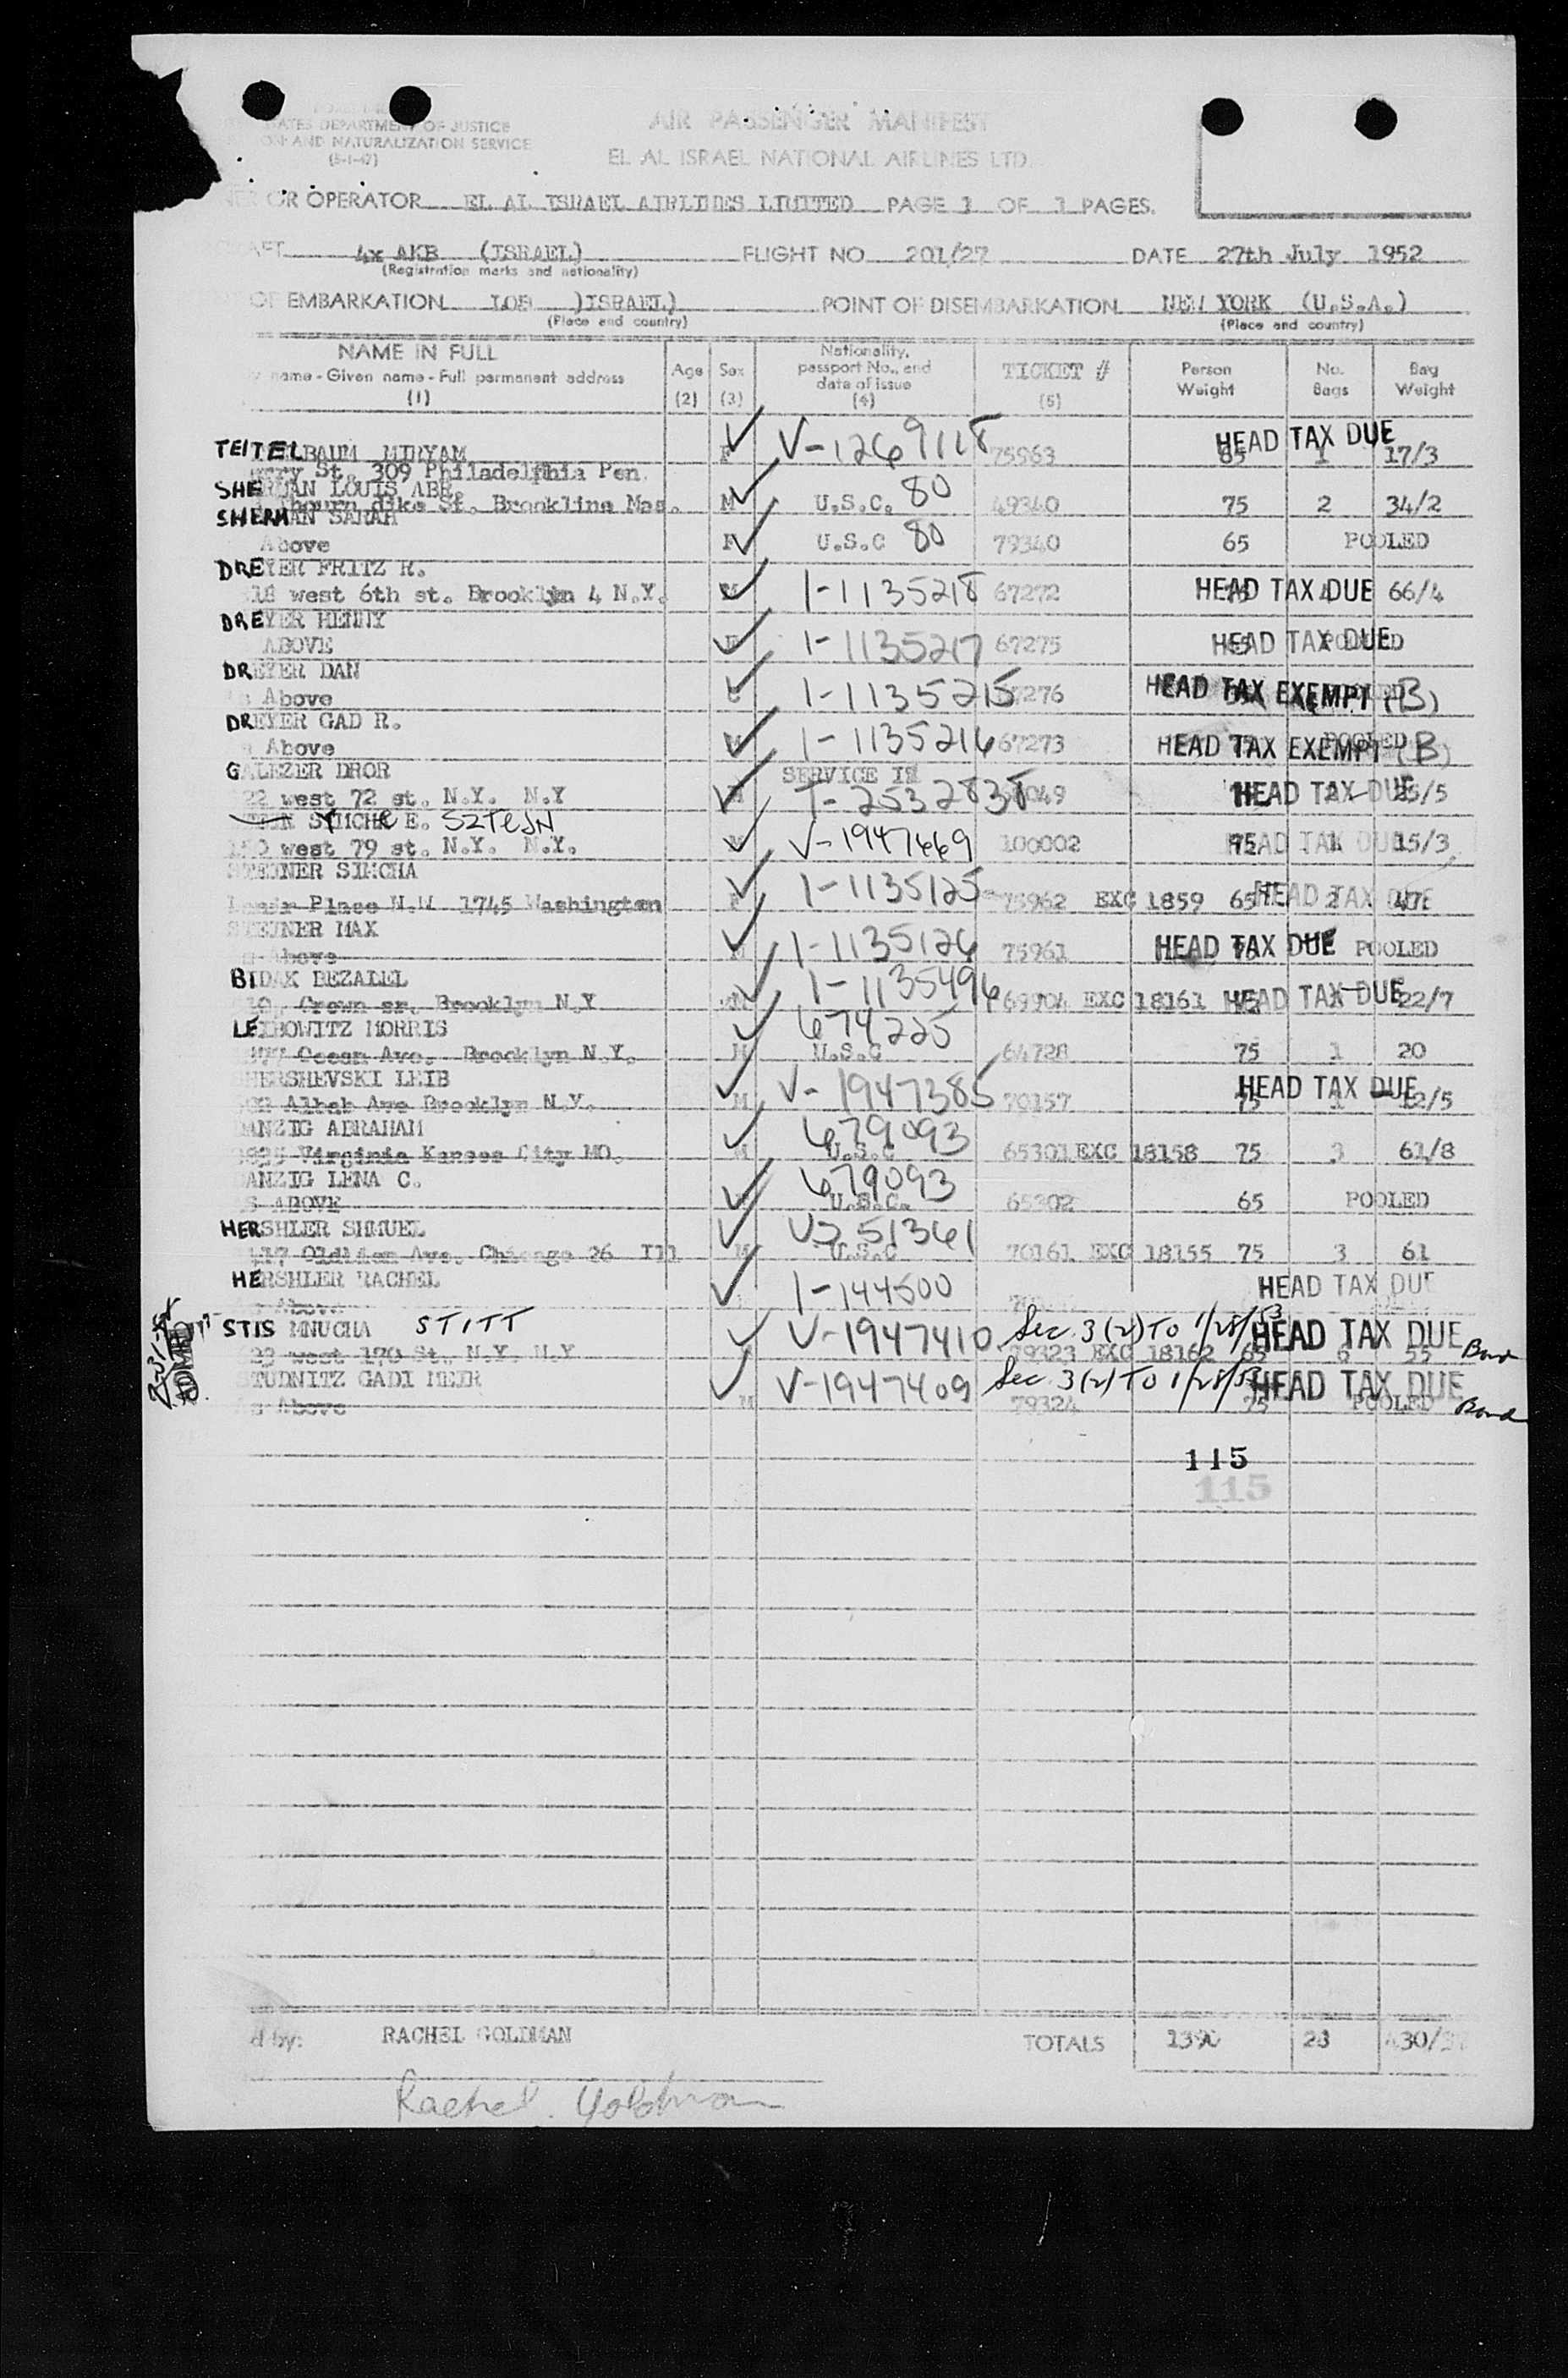 ATES DEPARTMENT OF JUSTICE
ON AND NATURALIZATION SERVICE
(5-1-47)
AIR PASSENGER MANIFEST
EL AL ISRAEL NATIONAL AIRLINES LTD.
OR OPERATOR EL AL ISRAEL AIRLINES LIMITED PAGE 1 OF 1 PAGES.
AFT 4x AKB (ISRAEL) FLIGHT NO 201/27 DATE 27th July 1952
(Registration marks and nationality)
OF EMBARKATION LOD )ISRAEL) POINT OF DISEMBARKATION NEW YORK (U.S.A.)
(Place and country) (Place and country)
NAME IN FULL
name - Given name - Full permanent address
(1)
Age
(2)
Sex
(3)
Nationality,
passport No., and
date of issue
(4)
TICKET #
(5)
Person
Weight
No.
Bags
Bag
Weight
TEITELBAUM MIRYAM F V-1269118 75963 85 HEAD TAX DUE 1 17/3
St. 309 Philadelphia Pen.
SHERMAN LOUIS ABR.
St. Brookline Mas. M U.S.C. 80 49340 75 2 34/2
SHERMAN SARAH
Above F U.S.C 80 79340 65 POOLED
DREYER FRITZ R.
18 west 6th st. Brooklyn 4 N.Y. M 1-1135218 67272 HEAD TAX DUE 66/4
DREYER HENNY
ABOVE F 1-1135217 67275 HEAD TAX DUE POOLED
DREYER DAN
Above 1-1135215 67276 HEAD TAX EXEMPT (B)
DREYER GAD R.
Above M 1-1135216 67273 HEAD TAX EXEMPT (B) POOLED
GALEZER DROR SERVICE IS
22 west 72 st. N.Y. N.Y T-2532838 049 HEAD TAX DUE 25/5
E. SZTEJN
150 west 79 st. N.Y. N.Y. V-1947469 100002 75 HEAD TAX DUE 1 15/3
STEINER SIMCHA
Place N.W 1745 Washington F 1-1135125 75962 EXC 1859 65 HEAD TAX DUE 2 47
STEINER MAX
s Above M 1-1135126 75961 HEAD TAX DUE POOLED
BIDAK BEZALEL
Crown sr. Brooklyn N.Y M 1-1135496 69904 EXC 18161 HEAD TAX DUE 22/7
LEIBOWITZ MORRIS 674225
Ocean Ave. Brooklyn N.Y. M U.S.C 64728 75 1 20
HERSHEVSKI LEIB
Ave Brooklyn N.Y. M V-1947385 70157 75 HEAD TAX DUE 1 12/5
DANZIG ABRAHAM 679093
Virginia Kansas City MO. M U.S.C 65301 EXC 18158 75 3 61/8
DANZIG LENA C. 679093
S ABOVE U.S.C. 65302 65 POOLED
HERSHLER SHMUEL 51361
Ave. Chicago 26 Ill M U.S.C 70161 EXC 18155 75 3 61
HERSHLER RACHEL 1-144500 HEAD TAX DUE
Above
STIS MNUCHA STITT V-1947410 Sec 3(2) TO 1/28/53 HEAD TAX DUE
23 west 170 St. N.Y. N.Y 79323 EXC 18162 65 6 55 Bond
ADMITTED
STUDNITZ GADI MEIR V-1947409 Sec 3(2) TO 1/28/53 HEAD TAX DUE
s Above M 79324 75 POOLED Bond
115
115
d by: RACHEL GOLDMAN TOTALS 1390 28 430/3
Rachel Goldman